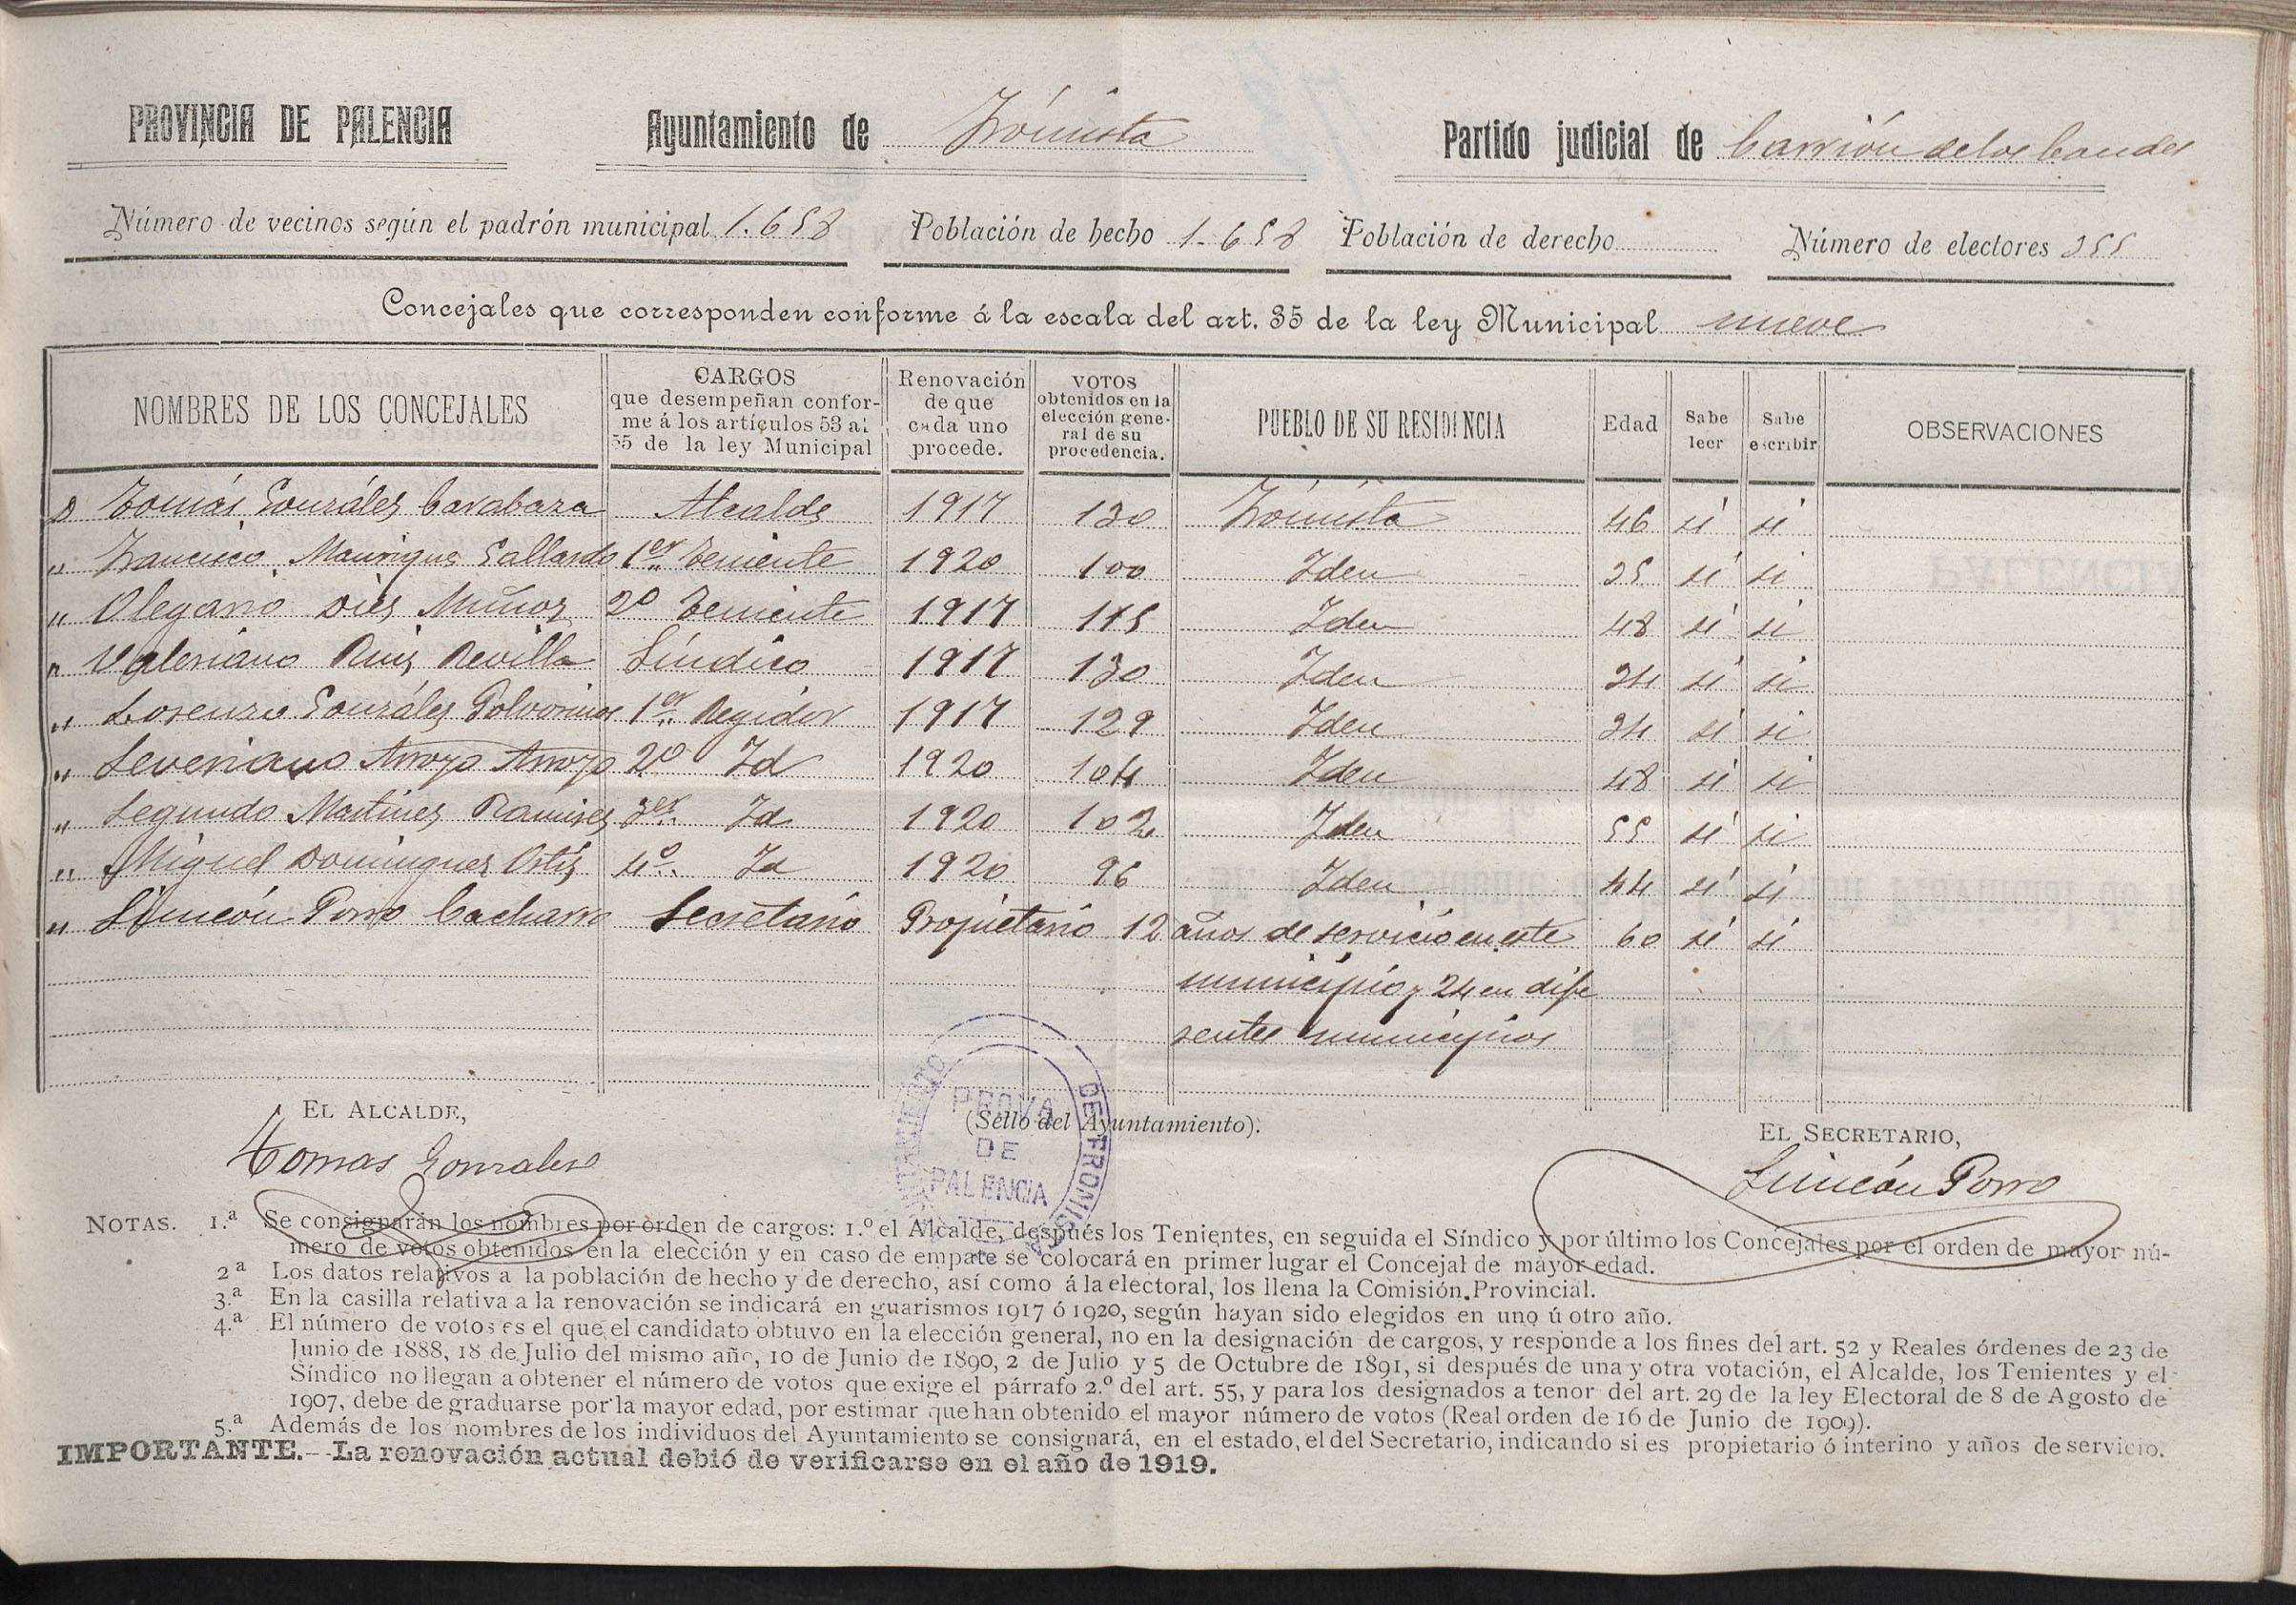 PROVINCIA DE PALENCIA Ayuntamiento de Frómista Partido judicial de Carrión de los Condes
Número de vecinos según el padrón municipal 1.658 Población de hecho 1.658 Población de derecho Número de electores 355
Concejales que corresponden conforme á la escala del art. 35 de la ley Municipal nueve
NOMBRES DE LOS CONCEJALES CARGOS que desempeñan conforme á los artículos 53 al 55 de la ley Municipal Renovación de que cada uno procede. VOTOS obtenidos en la elección general de su procedencia. PUEBLO DE SU RESIDENCIA Edad Sabe leer Sabe escribir OBSERVACIONES
D Tomás Gonzáles Carabaza Alcalde 1917 130 Frómista 46 si si
" Francisco Manrique Gallardo 1er Teniente 1920 100 Iden 35 si si
" Olegario Diez Muñoz 2º Teniente 1917 115 Iden 48 si si
" Valeriano Ruiz Revilla Síndico 1917 130 Iden 34 si si
" Lorenzo Gonzáles Polvorinos 1er Regidor 1917 129 Iden 34 si si
" Severiano Arroyo Arroyo 2º Id 1920 104 Iden 48 si si
" Segundo Martines Ramires 3er Id 1920 102 Iden 55 si si
" Miguel Domingues Ortiz 4º Id 1920 96 Iden 44 si si
" Simeón Porro Cacharro Secretario Propietario 12 años de servicio en este 60 si si
municipio y 24 en dife
rentes municipios
EL ALCALDE,
(Sello del Ayuntamiento).
EL SECRETARIO,
AYUNTAMIENTO DE FROMISTA
PROVA
DE
PALENCIA
Tomas Gonzales
Simeón Porro
NOTAS. 1.ª Se consignarán los nombres por orden de cargos: 1.º el Alcalde, después los Tenientes, en seguida el Síndico y por último los Concejales por el orden de mayor nú-
mero de votos obtenidos en la elección y en caso de empate se colocará en primer lugar el Concejal de mayor edad.
2ª Los datos relativos a la población de hecho y de derecho, así como á la electoral, los llena la Comisión Provincial.
3.ª En la casilla relativa a la renovación se indicará en guarismos 1917 ó 1920, según hayan sido elegidos en uno ú otro año.
4.ª El número de votos es el que el candidato obtuvo en la elección general, no en la designación de cargos, y responde a los fines del art. 52 y Reales órdenes de 23 de
Junio de 1888, 18 de Julio del mismo año, 10 de Junio de 1890, 2 de Julio y 5 de Octubre de 1891, si después de una y otra votación, el Alcalde, los Tenientes y el
Síndico no llegan a obtener el número de votos que exige el párrafo 2.º del art. 55, y para los designados a tenor del art. 29 de la ley Electoral de 8 de Agosto de
1907, debe de graduarse por la mayor edad, por estimar que han obtenido el mayor número de votos (Real orden de 16 de Junio de 1909).
5.ª Además de los nombres de los individuos del Ayuntamiento se consignará, en el estado, el del Secretario, indicando si es propietario ó interino y años de servicio.
IMPORTANTE.--La renovación actual debió de verificarse en el año de 1919.